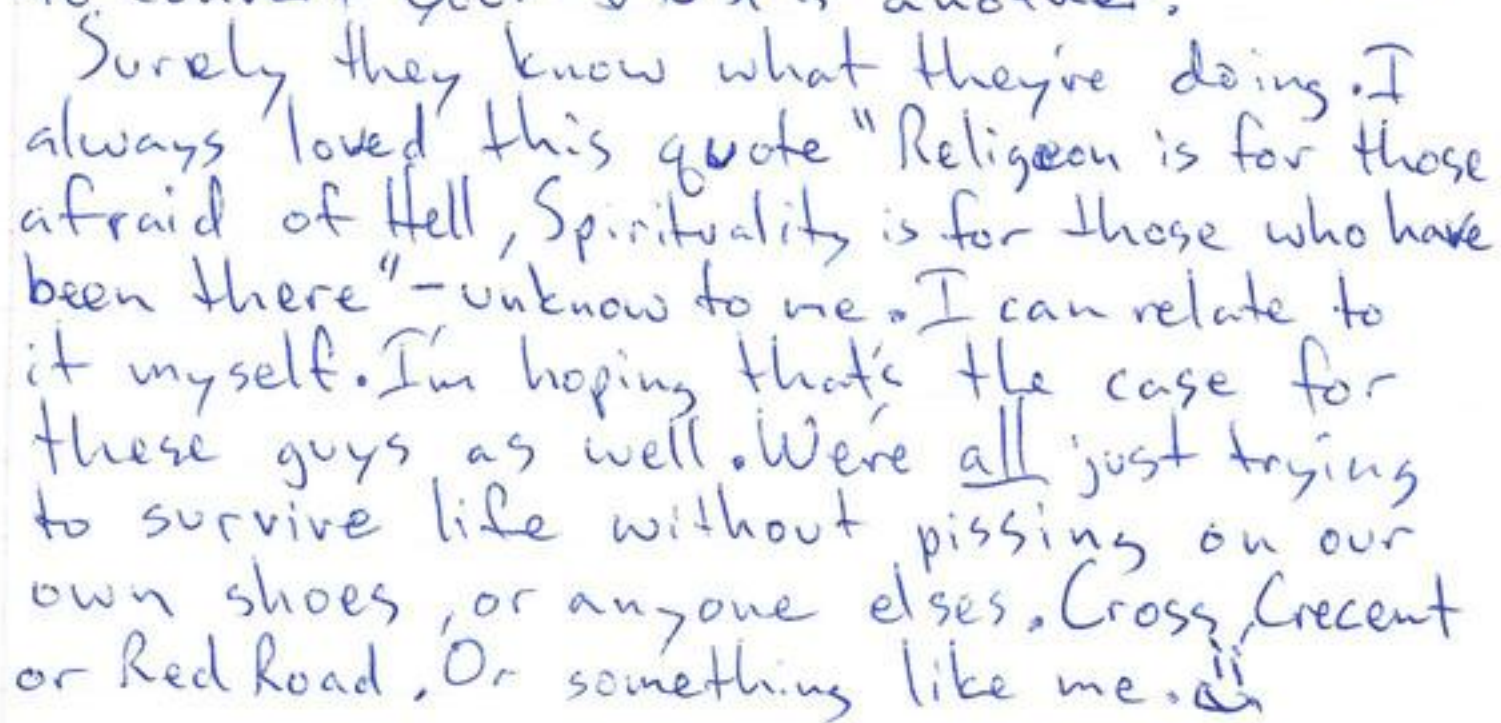 another.
Surely they know what they're doing. I
always loved this quote "Religeon is for those
afraid of Hell, Spirituality is for those who have
been there" - unknow to me. I can relate to
it myself. I'm hoping that's the case for
these guys as well. We're all just trying
to survive life without pissing on our
own shoes, or anyone elses. Cross, Crecent
or Red Road. Or something like me.